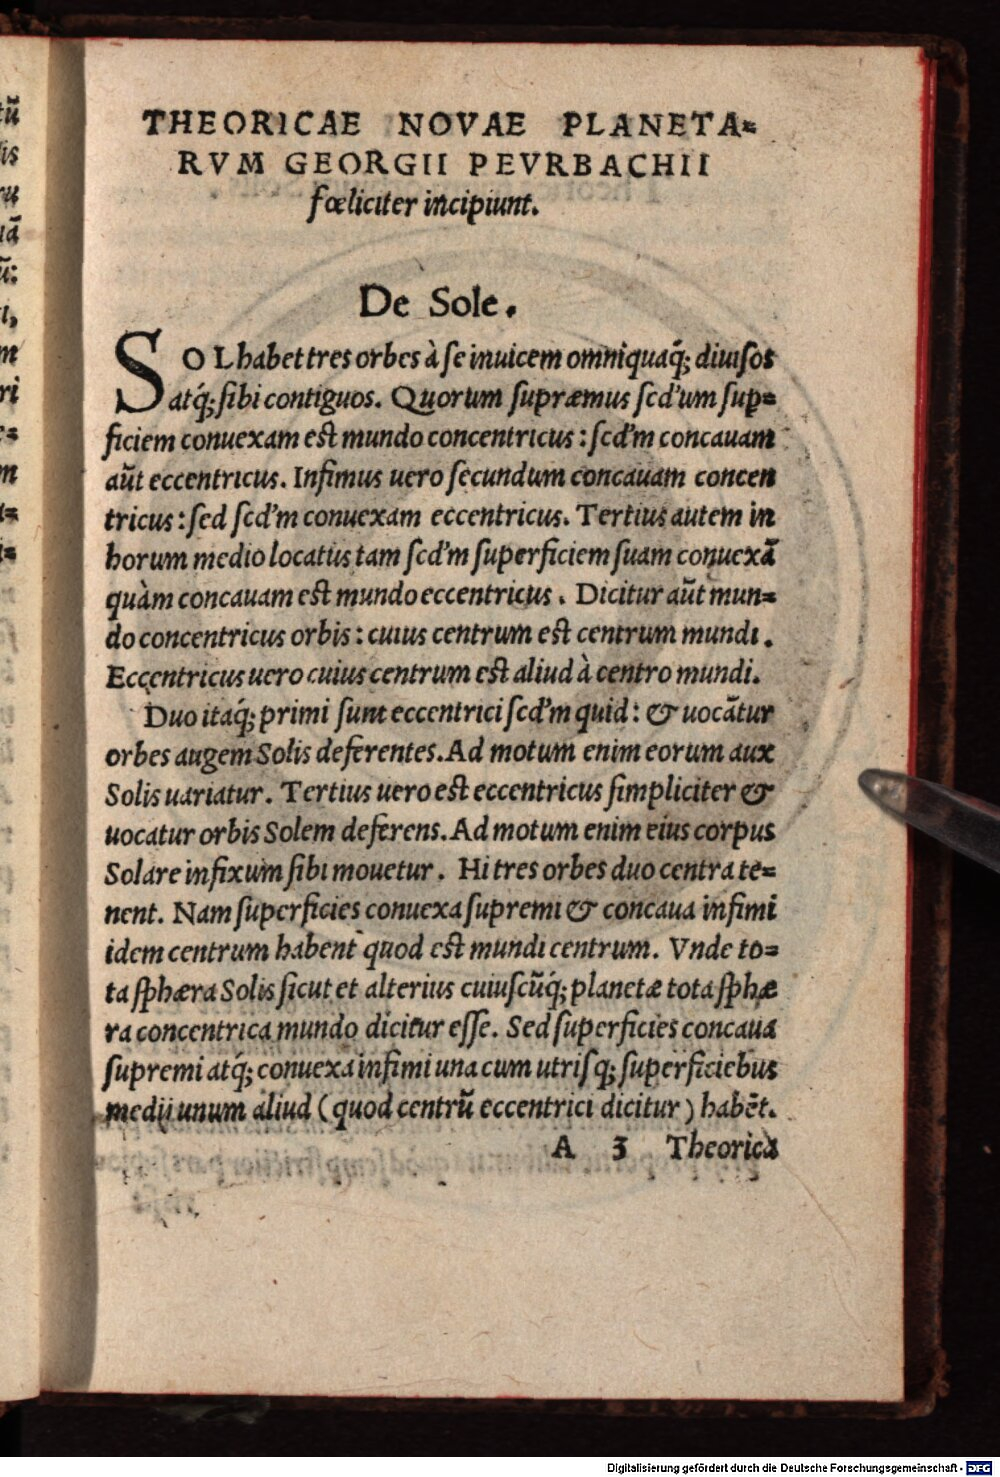 THEORICAE NOVAE PLANETA=
RVM GEORGII PEVRBACHII
fœliciter incipiunt.
De Sole.
SOL habet tres orbes à se inuicem omniquaq́; diuisos
atq́; sibi contiguos. Quorum supræmus scd'um sup=
ficiem conuexam est mundo concentricus: scd'm concauam
aūt eccentricus. Infimus uero secundum concauam concen
tricus: sed scd'm conuexam eccentricus. Tertius autem in
horum medio locatus tam scd'm superficiem suam conuexā
quàm concauam est mundo eccentricus. Dicitur aūt mun=
do concentricus orbis: cuius centrum est centrum mundi.
Eccentricus uero cuius centrum est aliud à centro mundi.
Duo itaq́; primi sunt eccentrici scd'm quid: & uocātur
orbes augem Solis deferentes. Ad motum enim eorum aux
Solis uariatur. Tertius uero est eccentricus simpliciter &
uocatur orbis Solem deferens. Ad motum enim eius corpus
Solare infixum sibi mouetur. Hi tres orbes duo centra te=
nent. Nam superficies conuexa supremi & concaua infimi
idem centrum habent quod est mundi centrum. Vnde to=
ta sphæra Solis sicut et alterius cuiuscūq́; planetæ tota sphæ
ra concentrica mundo dicitur esse. Sed superficies concaua
supremi atq́; conuexa infimi una cum utrisq; superficiebus
medij unum aliud (quod centrū eccentrici dicitur) habēt.
A 3 Theorica
Digitalisierung gefördert durch die Deutsche Forschungsgemeinschaft - DFG